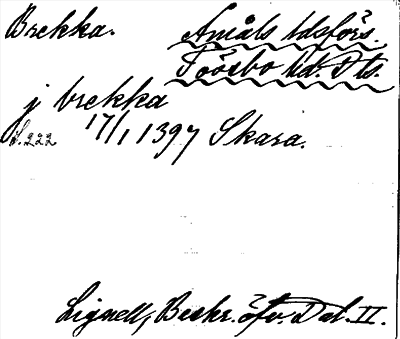 Brekka. Åmåls ldsförs.
Tössbo hd. Dls.
j brekka
S. 222 17/1 1397 Skara.
Lignell, Beskr. öfv. Dal. II.